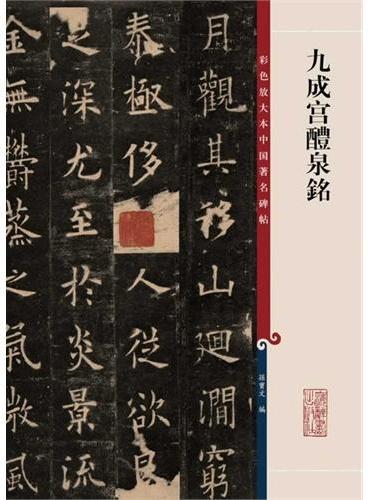 九成宫醴泉銘
彩色放大本中国著名碑帖
孫寶文 編
月觀其移山迴澗窮
泰極侈人從欲良
之深尤至於炎景流
金無欝蒸之氣微風